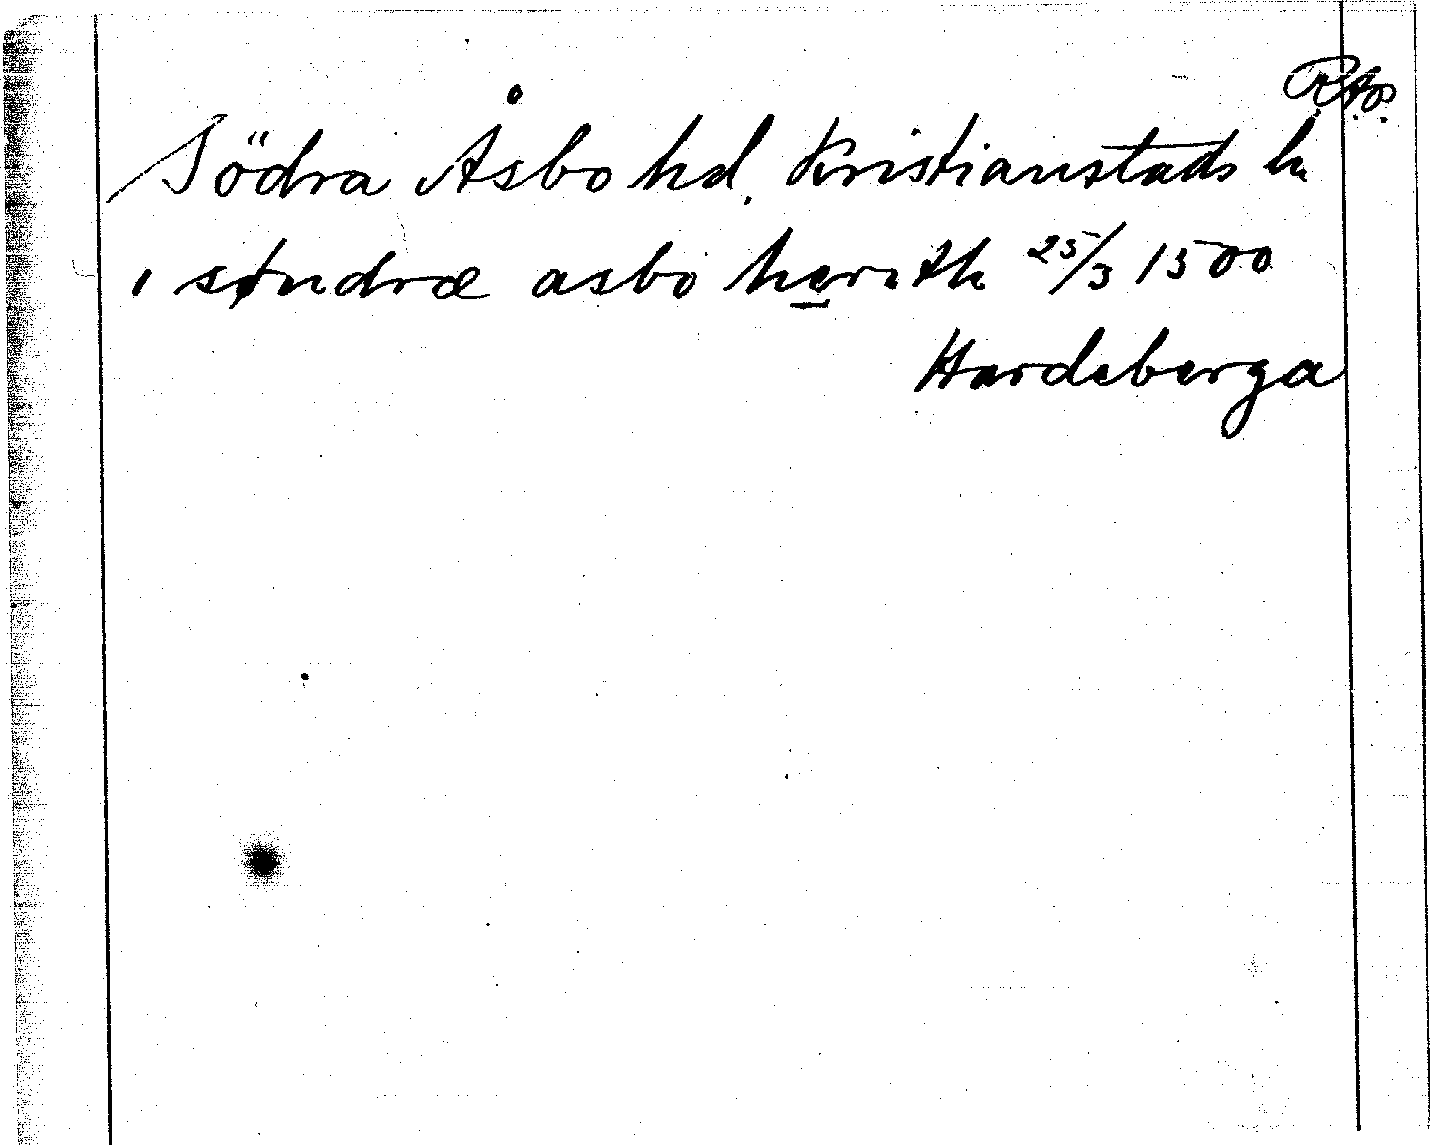 Södra Åsbo hd. Kristianstads
i søndræ asbo hæreth 25/3 1500
Hardeberga